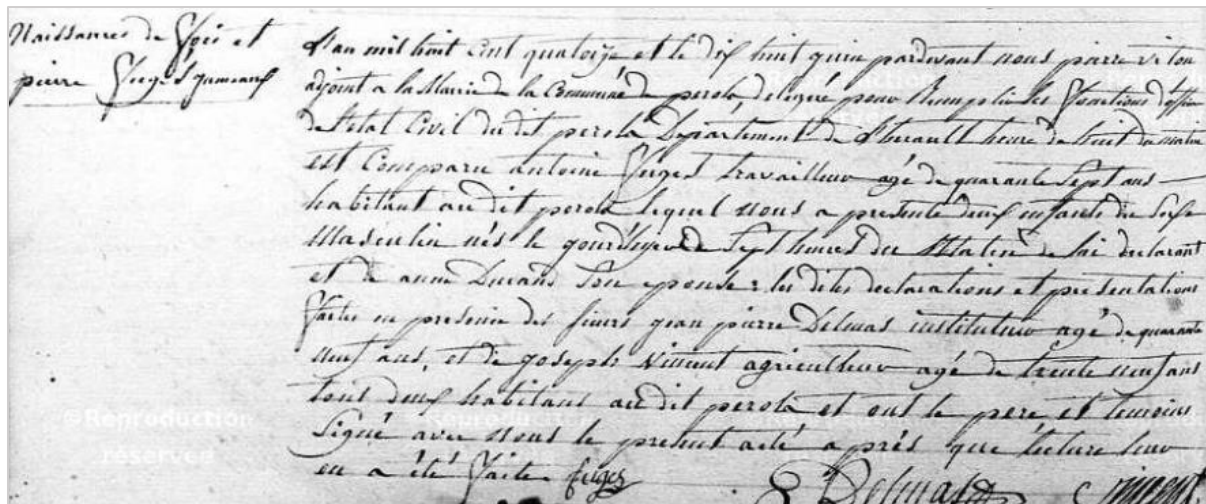 Naissances de et
pierre Fuzes jumeaux
L'an mil huit cent quatorze et le dix huit juin pardevant nous pierre viton
adjoint a la Mairie de la Commune de perols, délégué pour Remplir les fonctions d'officier
de l'état Civil du dit perols Département de l'herault heure de huit du matin
est Comparu antoine Fuzes travailleur agé de quarante Sept ans
habitant au dit perols lequel nous a presente deux enfants du Sexe
Masculin nés le jourdhyer de Sept heures du Matin de lui declarant
et de anne Durand Son epouse : les dites declarations et presentations
faites en presence des sieurs jean pierre Delmas instituteur agé de quarante
neuf ans, et de joseph vincent agriculteur agé de trente neuf ans
tout deux habitant au dit perols et ont le pere et temoins
Signé avec nous le present acte après que lecture leur
en a été faite fuzes
Delmas vincent
©Reproduction
reserved